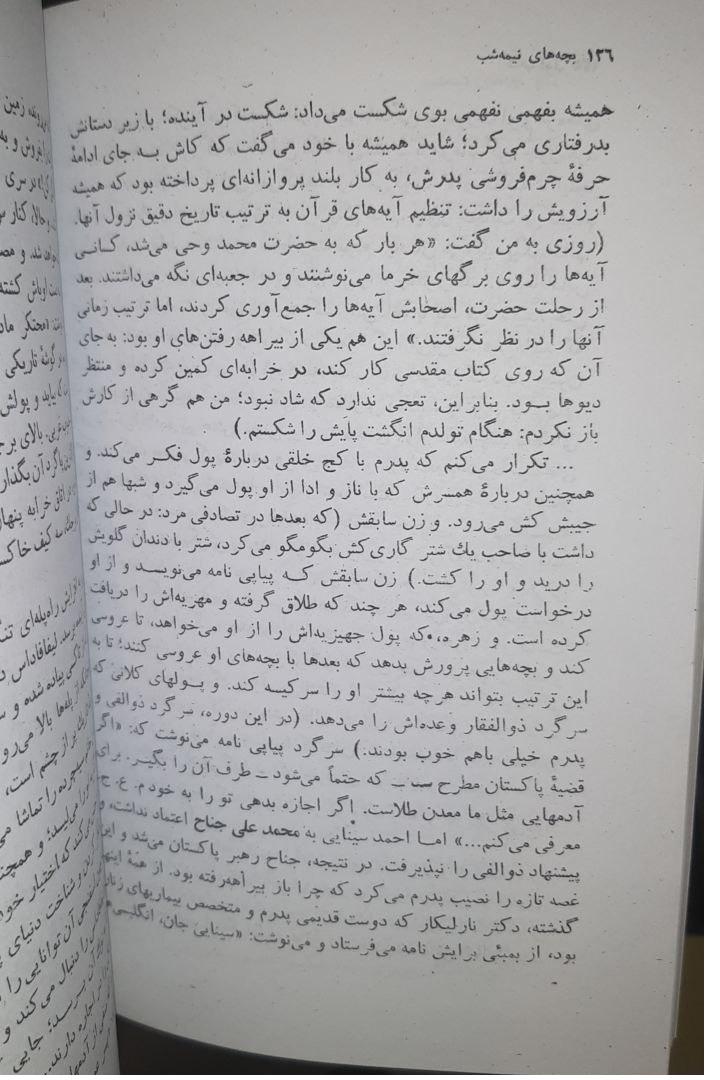 ۱۲۶ بچه‌های نیمه‌شب
همیشه بفهمی نفهمی بوی شکست می‌داد: شکست در آینده؛ با زیر دستانش
بدرفتاری می‌کرد؛ شاید همیشه با خود می‌گفت که کاش به جای ادامهٔ
حرفهٔ چرم‌فروشی پدرش، به کار بلند پروازانه‌ای پرداخته بود که همیشه
آرزویش را داشت: تنظیم آیه‌های قرآن به ترتیب تاریخ دقیق نزول آنها.
(روزی به من گفت: «هر بار که به حضرت محمد وحی می‌شد، کسانی
آیه‌ها را روی برگهای خرما می‌نوشتند و در جعبه‌ای نگه می‌داشتند. بعد
از رحلت حضرت، اصحابش آیه‌ها را جمع‌آوری کردند، اما ترتیب زمانی
آنها را در نظر نگرفتند.» این هم یکی از بیراهه رفتن‌های او بود: به جای
آن که روی کتاب مقدسی کار کند، در خرابه‌ای کمین کرده و منتظر
دیوها بود. بنابراین، تعجی ندارد که شاد نبود؛ من هم گرهی از کارش
باز نکردم: هنگام تولدم انگشت پایش را شکستم.)
... تکرار می‌کنم که پدرم با کج خلقی دربارهٔ پول فکر می‌کند. و
همچنین دربارهٔ همسرش که با ناز و ادا از او پول می‌گیرد و شبها هم از
جیبش کش می‌رود. و زن سابقش (که بعدها در تصادفی مرد: در حالی که
داشت با صاحب یك شتر گاری‌کش بگومگو می‌کرد، شتر با دندان گلویش
را درید و او را کشت.) زن سابقش که پیاپی نامه می‌نویسد و از او
درخواست پول می‌کند، هر چند که طلاق گرفته و مهزیه‌اش را دریافت
کرده است. و زهره، که پول جهیزیه‌اش را از او می‌خواهد، تا عروسی
کند و بچه‌هایی پرورش بدهد که بعدها با بچه‌های او عروسی کنند؛ تا به
این ترتیب بتواند هرچه بیشتر او را سرکیسه کند. و پولهای کلانی که
سرگرد ذوالفقار وعده‌اش را می‌دهد. (در این دوره، سرگرد ذوالفی و
پدرم خیلی باهم خوب بودند.) سرگرد پیاپی نامه می‌نوشت که: «اگر
قضیهٔ پاکستان مطرح شد ــ که حتماً می‌شود ــ طرف آن را بگیر. برای
آدمهایی مثل ما معدن طلاست. اگر اجازه بدهی تو را به خودم. ع. ج.
معرفی می‌کنم...» اما احمد سینایی به محمد علی جناح اعتماد نداشت، و
پیشنهاد ذوالفی را نپذیرفت. در نتیجه، جناح رهبر پاکستان می‌شد و این
غصه تازه را نصیب پدرم می‌کرد که چرا باز بیراهه‌رفته بود. از همهٔ اینها
گذشته، دکتر نارلیکار که دوست قدیمی پدرم و متخصص بیماریهای زنان
بود، از بمبئی برایش نامه می‌فرستاد و می‌نوشت: «سینایی جان، انگلیسی‌ها